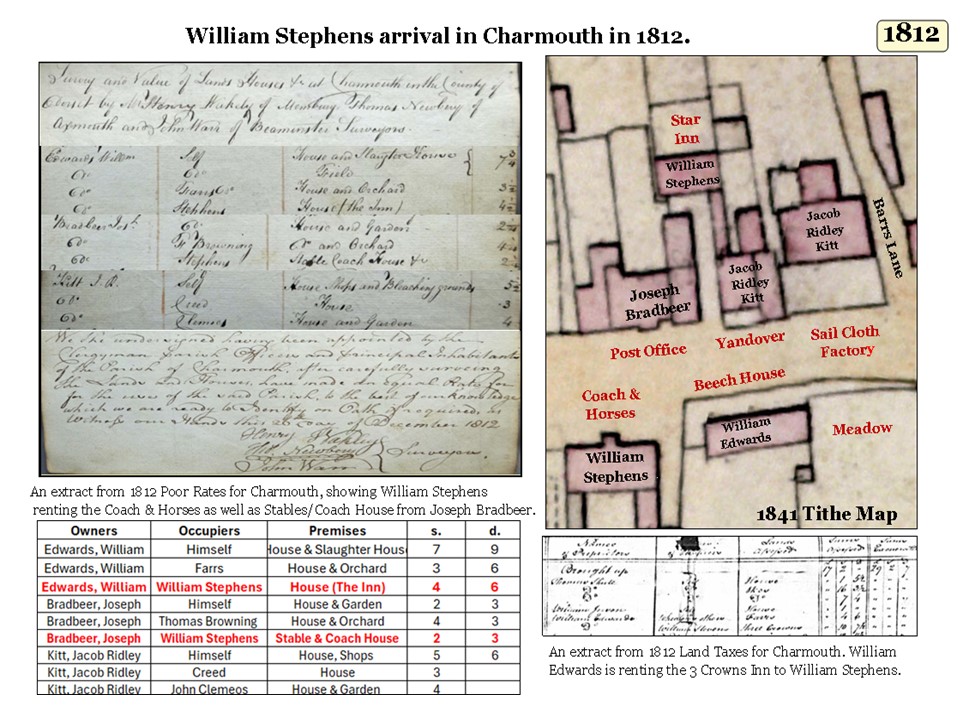 William Stephens arrival in Charmouth in 1812.
1812
Survey and Value of Lands Houses &c at Charmouth in the County of
Dorset by Mr Henry Wakely of Newbury of
Axmouth and John Warr of Beaminster Surveyors.
Edwards Willm Self House and Slaughter House
Do Do Field
Do House and Orchard 3
Do Stephens House (the Inn) 4
Bradbeer Jos. Do House and Garden
Do Browning Do and Orchard
Do Stephens Stable Coach House &c
Kitt J. R. Self House Shops and Bleaching grounds
Do Creed House 3
Do Clemeos House and Garden 4
We the undersigned have been appointed by the
Clergyman Parish Officers and Principal Inhabitants
of the Parish of Charmouth, after carefully surveying
the Lands and Houses, have made an equal Rate for
for the use of the said Parish, to the best of our knowledge
which we are ready to Identify on Oath if required, As
Witness our Hands this 26 Day of December 1812
Henry Wakely
Newbery Surveyors.
John Warr
An extract from 1812 Poor Rates for Charmouth, showing William Stephens
renting the Coach & Horses as well as Stables/Coach House from Joseph Bradbeer.
Owners Occupiers Premises s. d.
Edwards, William Himself House & Slaughter Hous 7 9
Edwards, William Farrs House & Orchard 3 6
Edwards, William William Stephens House (The Inn) 4 6
Bradbeer, Joseph Himself House & Garden 2 3
Bradbeer, Joseph Thomas Browning House & Orchard 4 3
Bradbeer, Joseph William Stephens Stable & Coach House 2 3
Kitt, Jacob Ridley Himself House, Shops 5 6
Kitt, Jacob Ridley Creed House 3
Kitt, Jacob Ridley John Clemeos House & Garden 4
Star
Inn
William
Stephens
Jacob
Ridley
Kitt
Barrs Lane
Jacob
Ridley
Kitt
Joseph
Bradbeer
Post Office
Yandover
Sail Cloth
Factory
Beech House
Coach &
Horses
William
Edwards
Meadow
William
Stephens
1841 Tithe Map
Names
of Proprietors
Brought up
William Edwards
William Stevens Three Crowns
An extract from 1812 Land Taxes for Charmouth. William
Edwards is renting the 3 Crowns Inn to William Stephens.